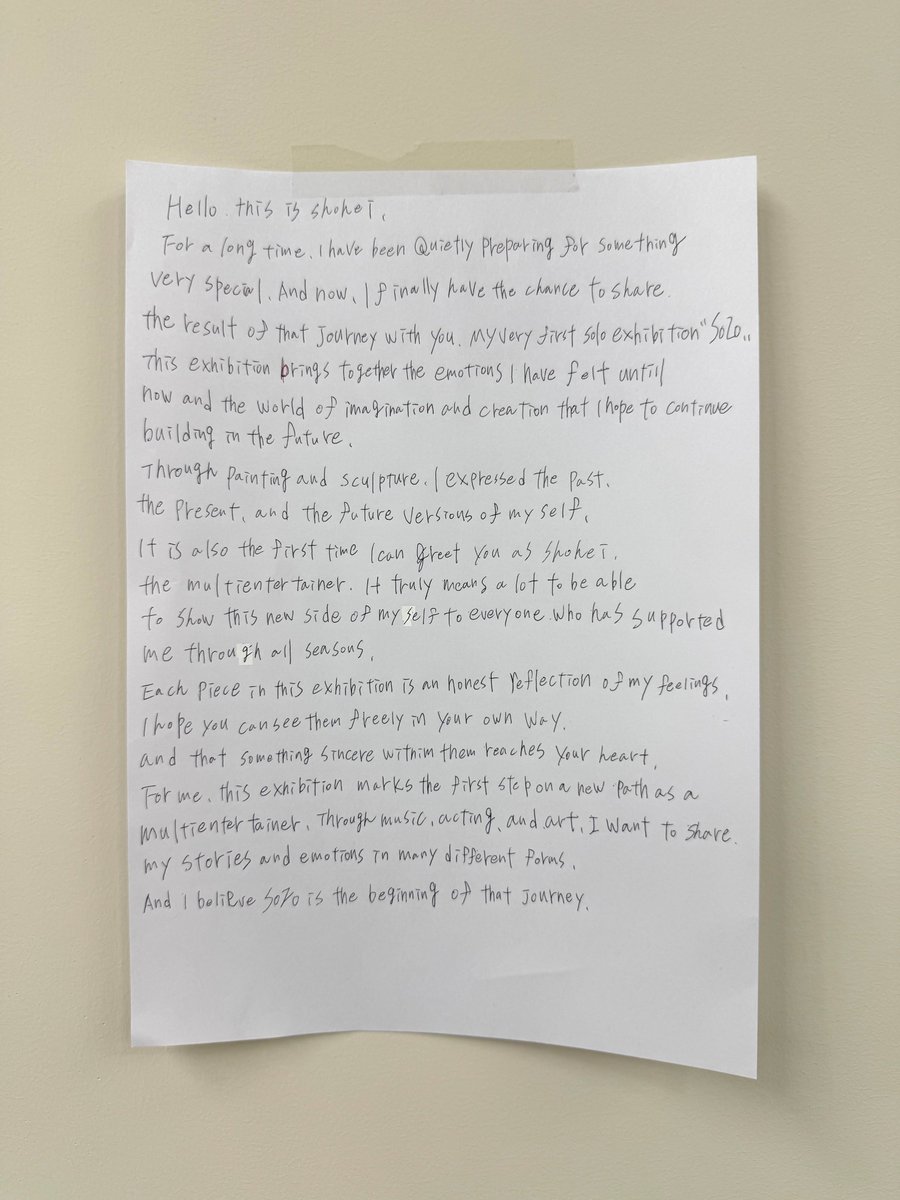 Hello. this is shohei.
For a long time. I have been Quietly Preparing for something
very special. And now. I finally have the chance to share.
the result of that Journey with you. My very first solo exhibition "SoZo„
This exhibition brings together the emotions I have felt until
now and the world of imagination and creation that I hope to continue
building in the future.
Through Painting and sculpture. I expressed the Past.
the Present. and the future versions of my self.
It is also the first time I can greet you as shohei.
the multientertainer. It truly means a lot to be able
to show this new side of my self to everyone who has supported
me through all seasons.
Each Piece in this exhibition is an honest reflection of my feelings.
I hope you can see them freely in your own way.
and that something sincere within them reaches your heart.
For me. this exhibition marks the first step on a new Path as a
multientertainer. Through music. acting. and art. I want to share.
my stories and emotions in many different forms.
And I believe SoZo is the beginning of that Journey.